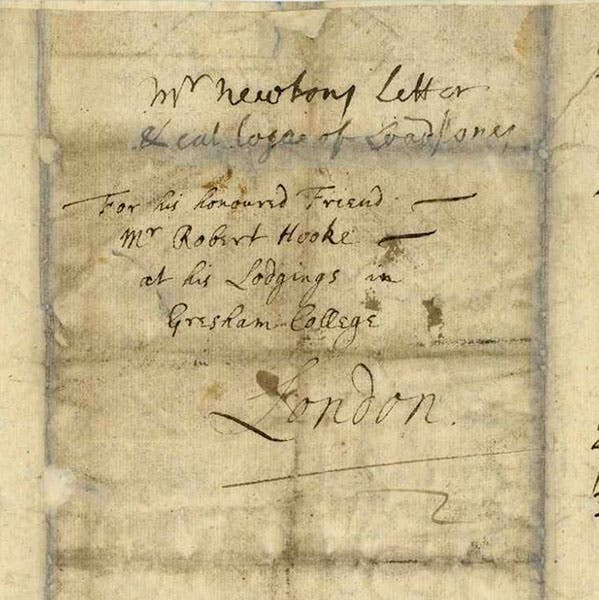 Mr Newtons Letter
& catloge of Loadstones
For his honoured Friend
Mr Robert Hooke
at his Lodgings in
Gresham College
in
London.